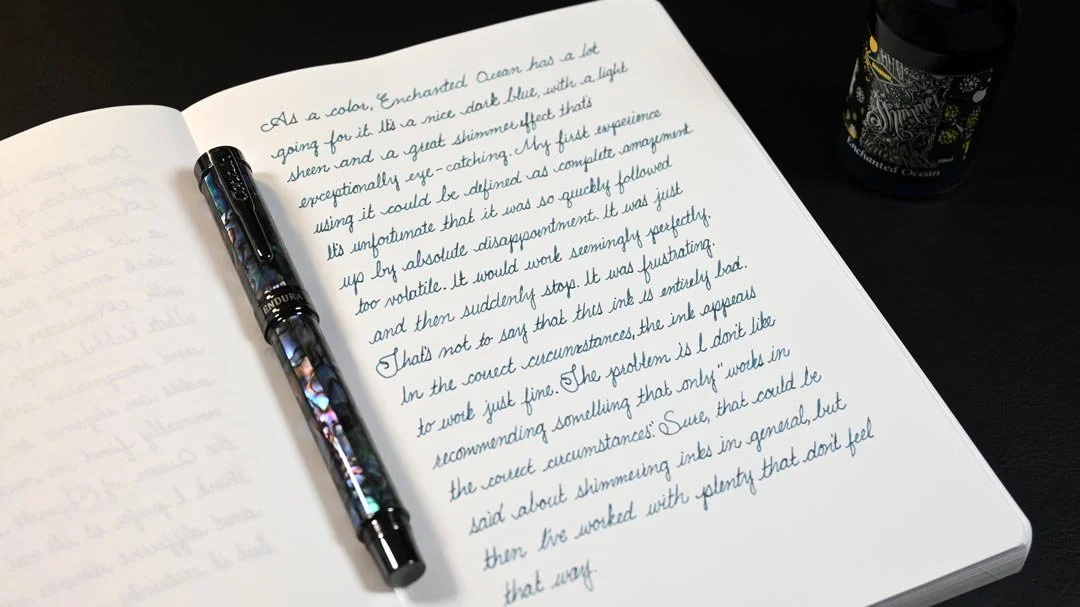 As a color, Enchanted Ocean has a lot
going for it. It's a nice dark blue, with a light
sheen and a great shimmer effect that's
exceptionally eye-catching. My first experience
using it could be defined as complete amazement.
It's unfortunate that it was so quickly followed
up by absolute disappointment. It was just
too volatile. It would work seemingly perfectly,
and then suddenly stop. It was frustrating.
That's not to say that this ink is entirely bad.
In the correct circumstances, the ink appears
to work just fine. The problem is I don't like
recommending something that only "works in
the correct circumstances". Sure, that could be
said about shimmering inks in general, but
then I've worked with plenty that don't feel
that way.
ENDURA
Shimmer
Enchanted Ocean